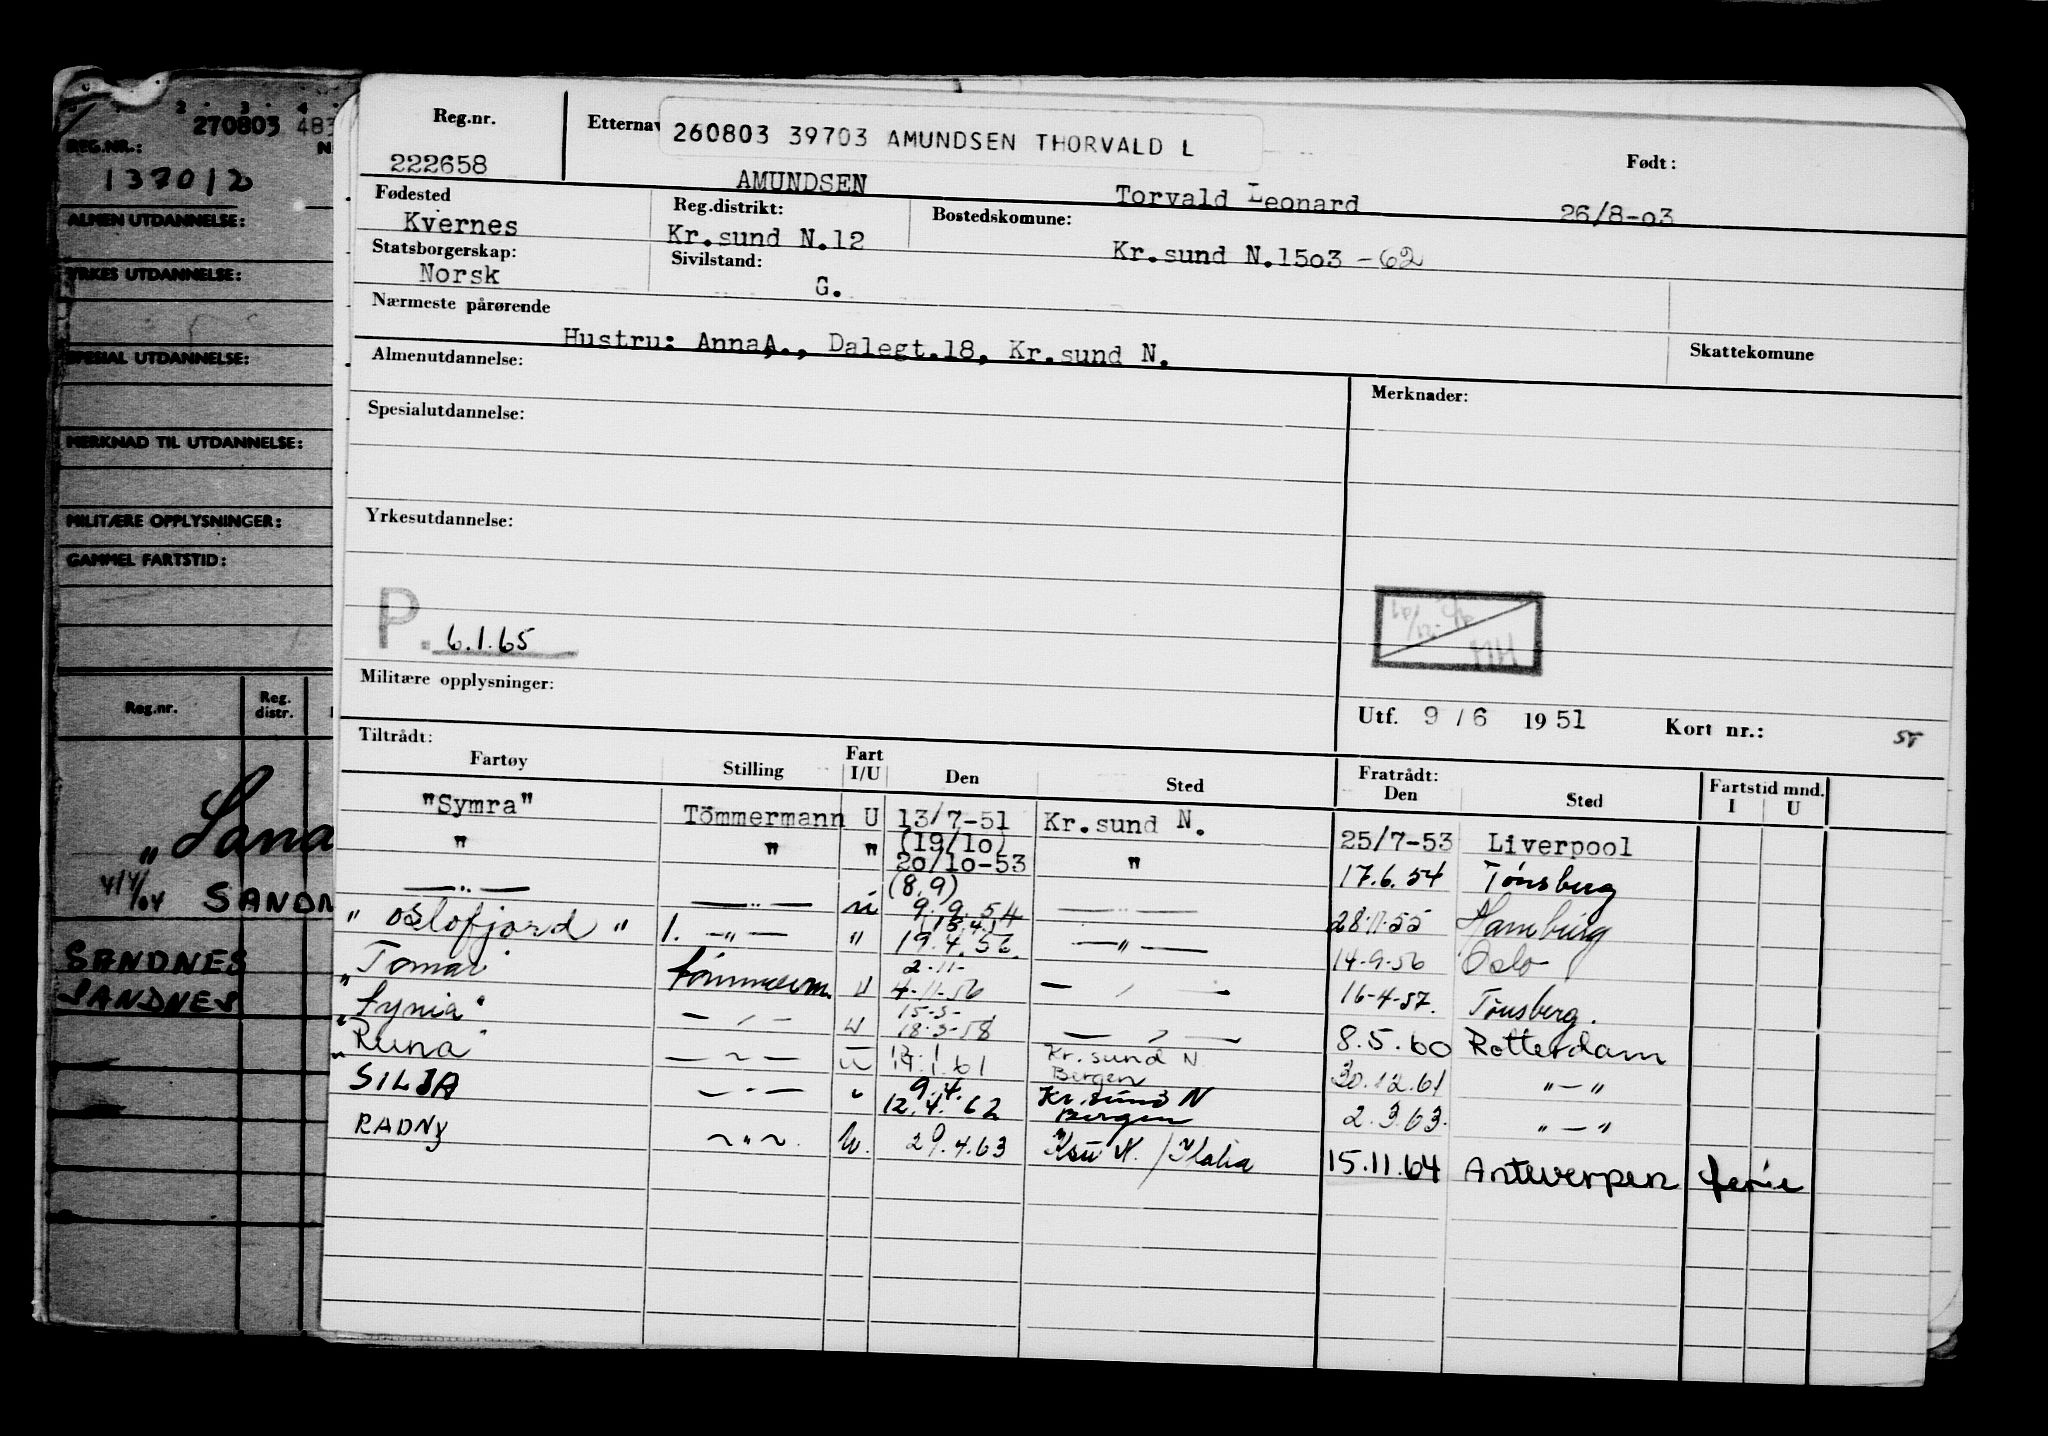 2 3 4
270803 483
REG.NR.: N
137012
ALMEN UTDANNELSE:
YRKES UTDANNELSE:
SPESIAL UTDANNELSE:
MERKNAD TIL UTDANNELSE:
MILITÆRE OPPLYSNINGER:
GAMMEL FARTSTID:
Reg.nr. Reg. distr.
"Sana
SANDN
SANDNES
SANDNES
Reg.nr. Etternav 260803 39703 AMUNDSEN THORVALD L Født:
222658 AMUNDSEN Torvald Leonard 26/8-o3
Fødested Reg.distrikt: Bostedskomune:
Kvernes Kr.sund N.12 Kr.sund N.15o3 -62
Statsborgerskap: Sivilstand:
Norsk G.
Nærmeste pårørende
Hustru: Anna A., Dalegt.18, Kr.sund N. Skattekomune
Almenutdannelse: Merknader:
Spesialutdannelse:
Yrkesutdannelse:
P. 6.1.65
Militære opplysninger:
Utf. 9 / 6 19 51 Kort nr.: 5T
Tiltrådt: Fratrådt:
Fartøy Stilling Fart I/U Den Sted Den Sted Fartstid mnd. I U
"Symra" Tömmermann U 13/7-51 Kr.sund N. 25/7-53 Liverpool
" " " (19/10) 20/10-53 " 17.6.54 Tönsberg
—..— —..— u (8.9) 9.9.54 —..— 28.11.55 Hamburg
"Oslofjord" 1. —"— " (13.4.) 19.4.56. —"— 14-9-56 Oslo
"Tomar" tømmerm. U 2-11- 4-11-56 — , — 16-4-57. Tønsberg.
"Fynia" — , — U 15-3- 18-3-58 — , — 8.5.60 Rotterdam
"Runa" — ~ — u 12. 14.1.61 Kr.sund N Bergen 30.12.61 "—"
SILJA — . — " 9.4. 12.4.62 Kr.sund N Bergen 2.3.63. "—"
RADNY ~"~. U. 29.4.63 Ksu N. / Italia 15.11.64 Antwerpen ferie